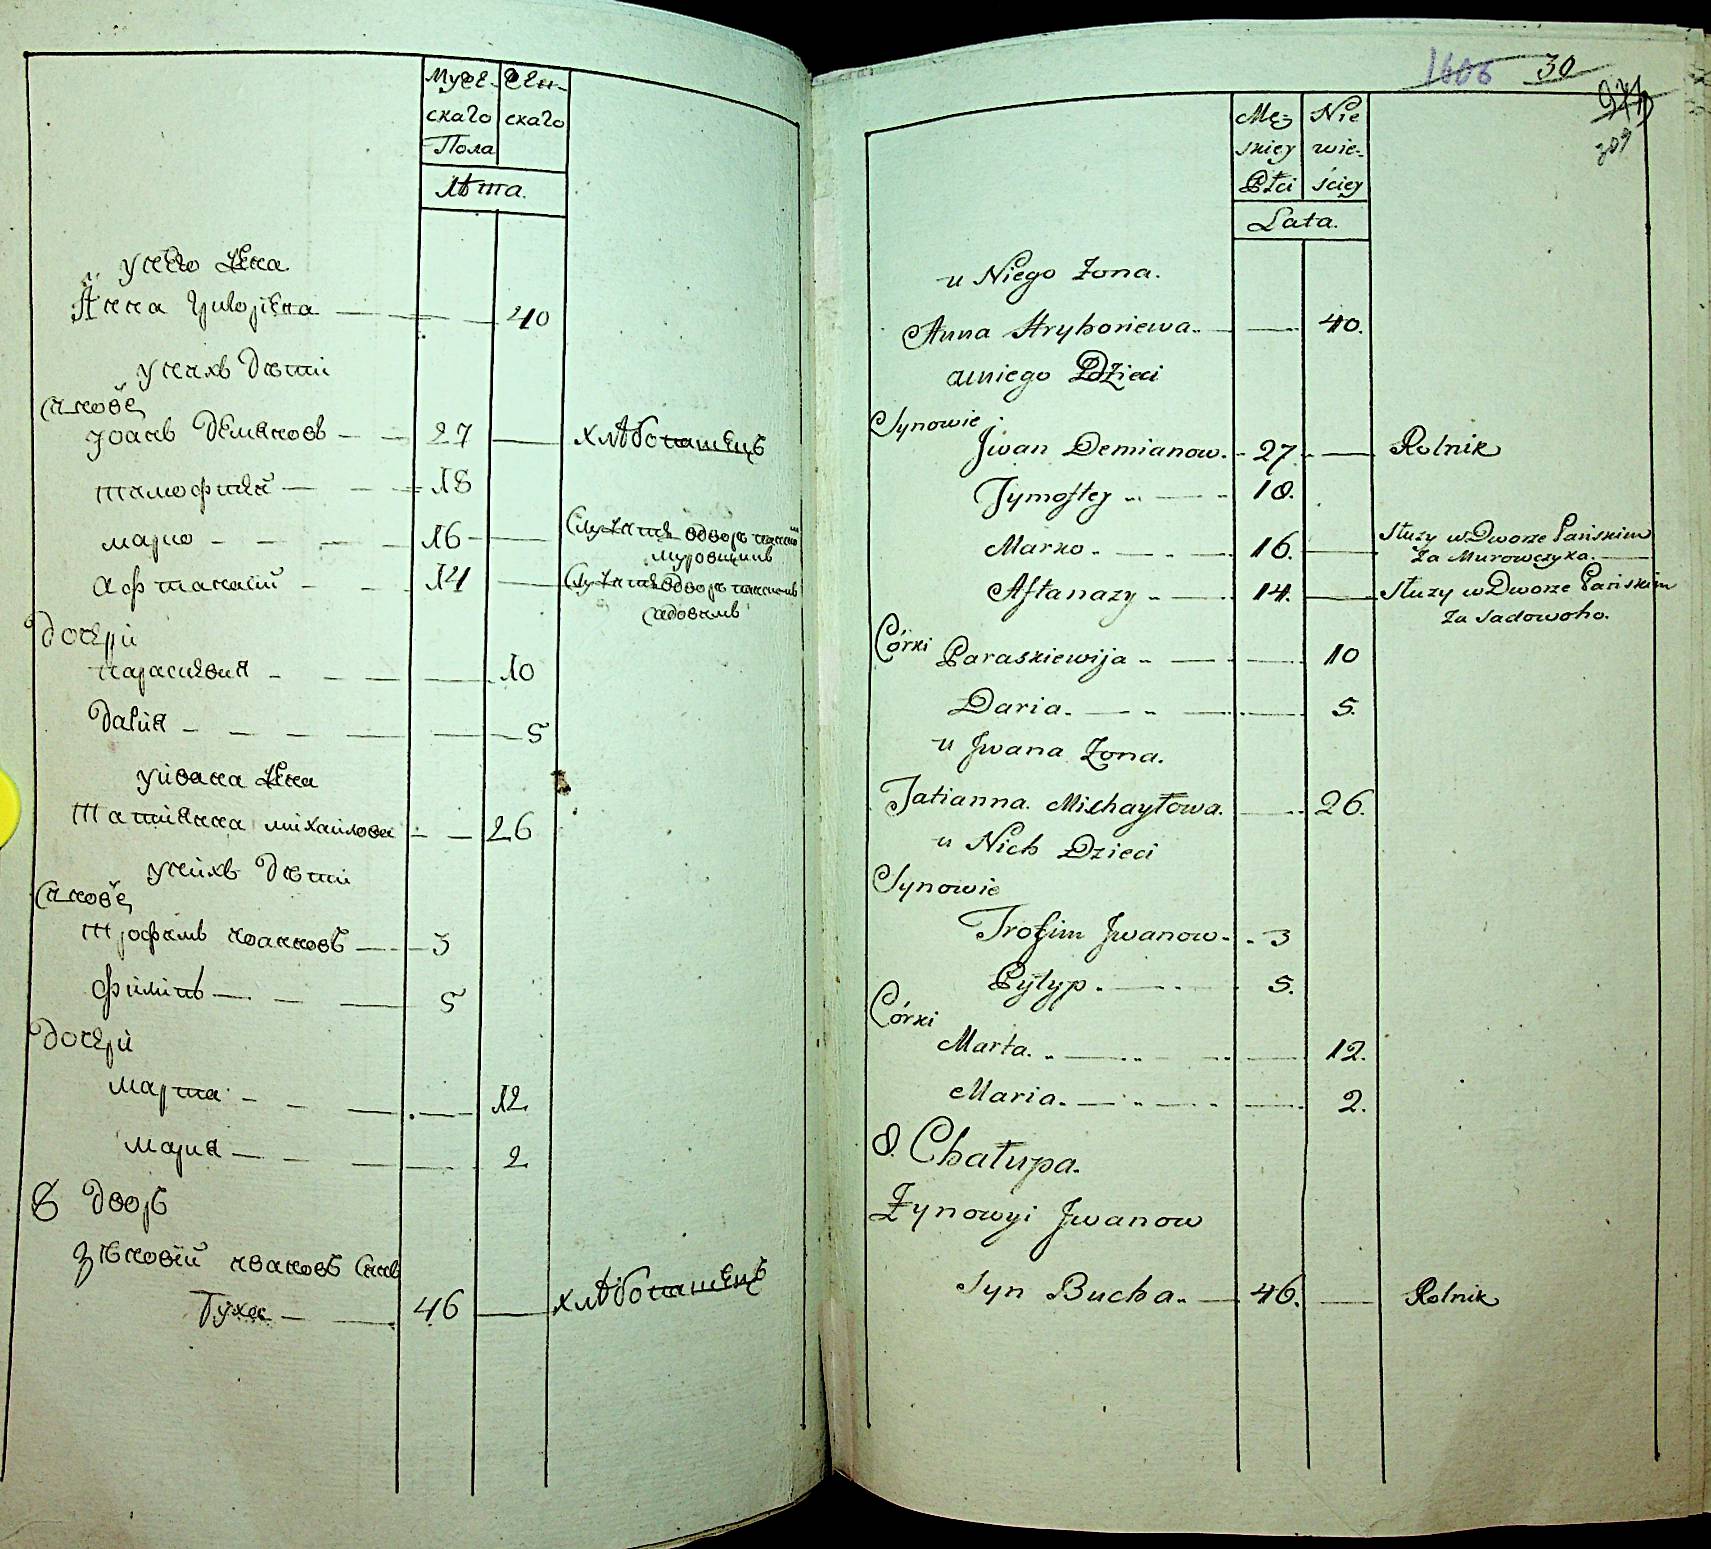 Мужe- Жен-
скаго скаго
Пола
Лѣта.
у него жена
Анна Григорiева 40
у нихъ дѣти
Синовѣ
Иванъ Демяновъ 27 хлѣбопашецъ
тимофѣй 18
марко 16 Служитъ въ дворѣ панскомъ
муровщикъ
афтанасiй 14 Служитъ въ дворѣ панскомъ
садовимъ
Дочери
параскѣвия 10
Дария 5
у Ивана жена
татiянна михайлова 26
у нихъ дѣти
Синовѣ
трофимъ ивановъ 3
филипъ 5
Дочери
марта 12
мария 2
8 Дворъ
Зѣновiй ивановъ синъ
Буха 46 хлѣбопашецъ
1606 30
271
309
Męz- Nie
skiey wie-
Płci ściey
Lata.
u Niego Żona.
Anna Hryhoriewa 40.
u niego Dzieci
Synowie
Jwan Demianow. 27. Rolnik
Tymoftey 18.
Marko 16. Słuzy w Dworze Pańskim
Za Murowczyka.
Aftanazy 14. Słuzy w Dworze Pańskim
Za Sadowoho.
Córki
Paraskiewija 10
Daria 5.
u Jwana Żona.
Tatianna Michayłowa. 26.
u Nich Dzieci
Synowie
Trofim Jwanow 3
Pyłyp 5.
Córki
Marta 12.
Maria 2.
8. Chałupa.
Zynowyi Jwanow
Syn Bucha 46. Rolnik